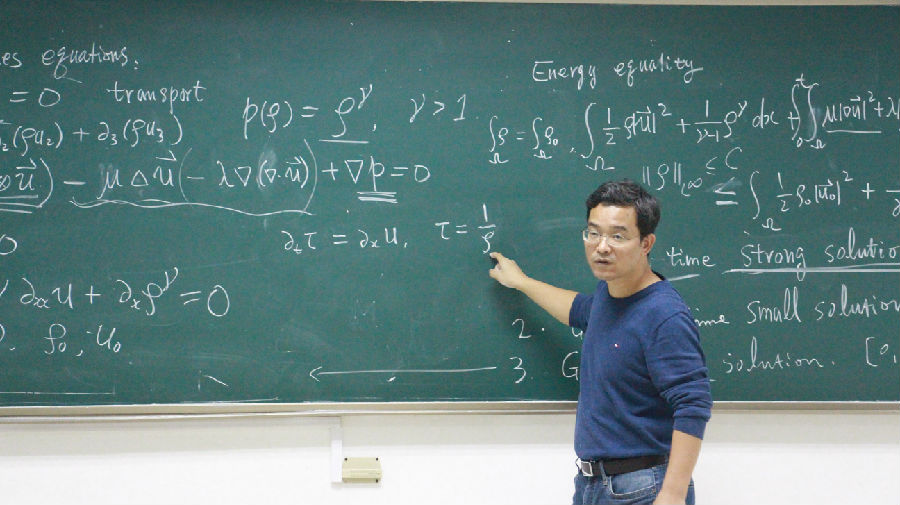 es equations.
= 0 transport
∂₂(ρu₂) + ∂₃(ρu₃)
p(ρ) = ρ^γ, γ > 1.
⊗u⃗) − μ△u⃗ (− λ∇(∇·u⃗)) + ∇p = 0
0
∂ₜτ = ∂ₓu, τ = 1/ρ
∂ₓₓu + ∂ₓρ^γ = 0
ρ₀, u₀
Energy equality
∫_Ω ρ = ∫_Ω ρ₀, ∫_Ω ½ρ|u⃗|² + 1/(γ−1) ρ^γ dx + ∫₀ᵗ∫_Ω μ|∇u⃗|² + λ
‖ρ‖_{L∞} ≤ C
≤ ∫_Ω ½ρ₀|u⃗₀|² +
time strong solution
2. me small solution
3. G solution. [0,